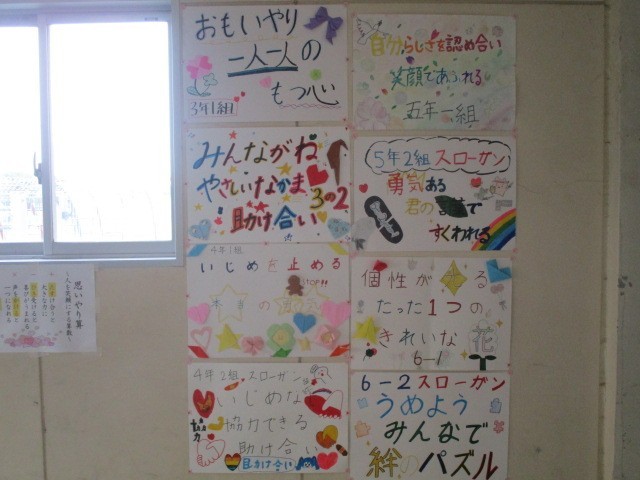 おもいやり
一人一人の
もつ心
3年1組
みんながね
やさしいなかま
3の2
助け合い
4年1組
いじめを止める
4年2組 スローガン
いじめな
協力できる
助け合い
協力
助け合い
自分らしさを認め合い
笑顔であふれる
五年一組
5年2組 スローガン
勇気ある
君の
すくわれる
個性が
たった1つの
きれいな
花
6-1
6-2スローガン
うめよう
みんなで
絆のパズル
思いやり算